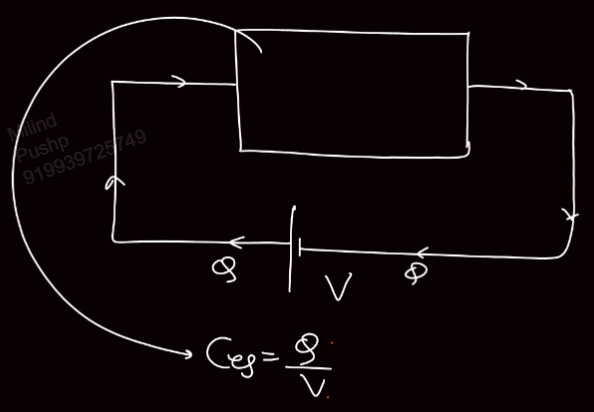 Milind
Pushp
919939725749
Q
V
Q
Ceq = Q
V